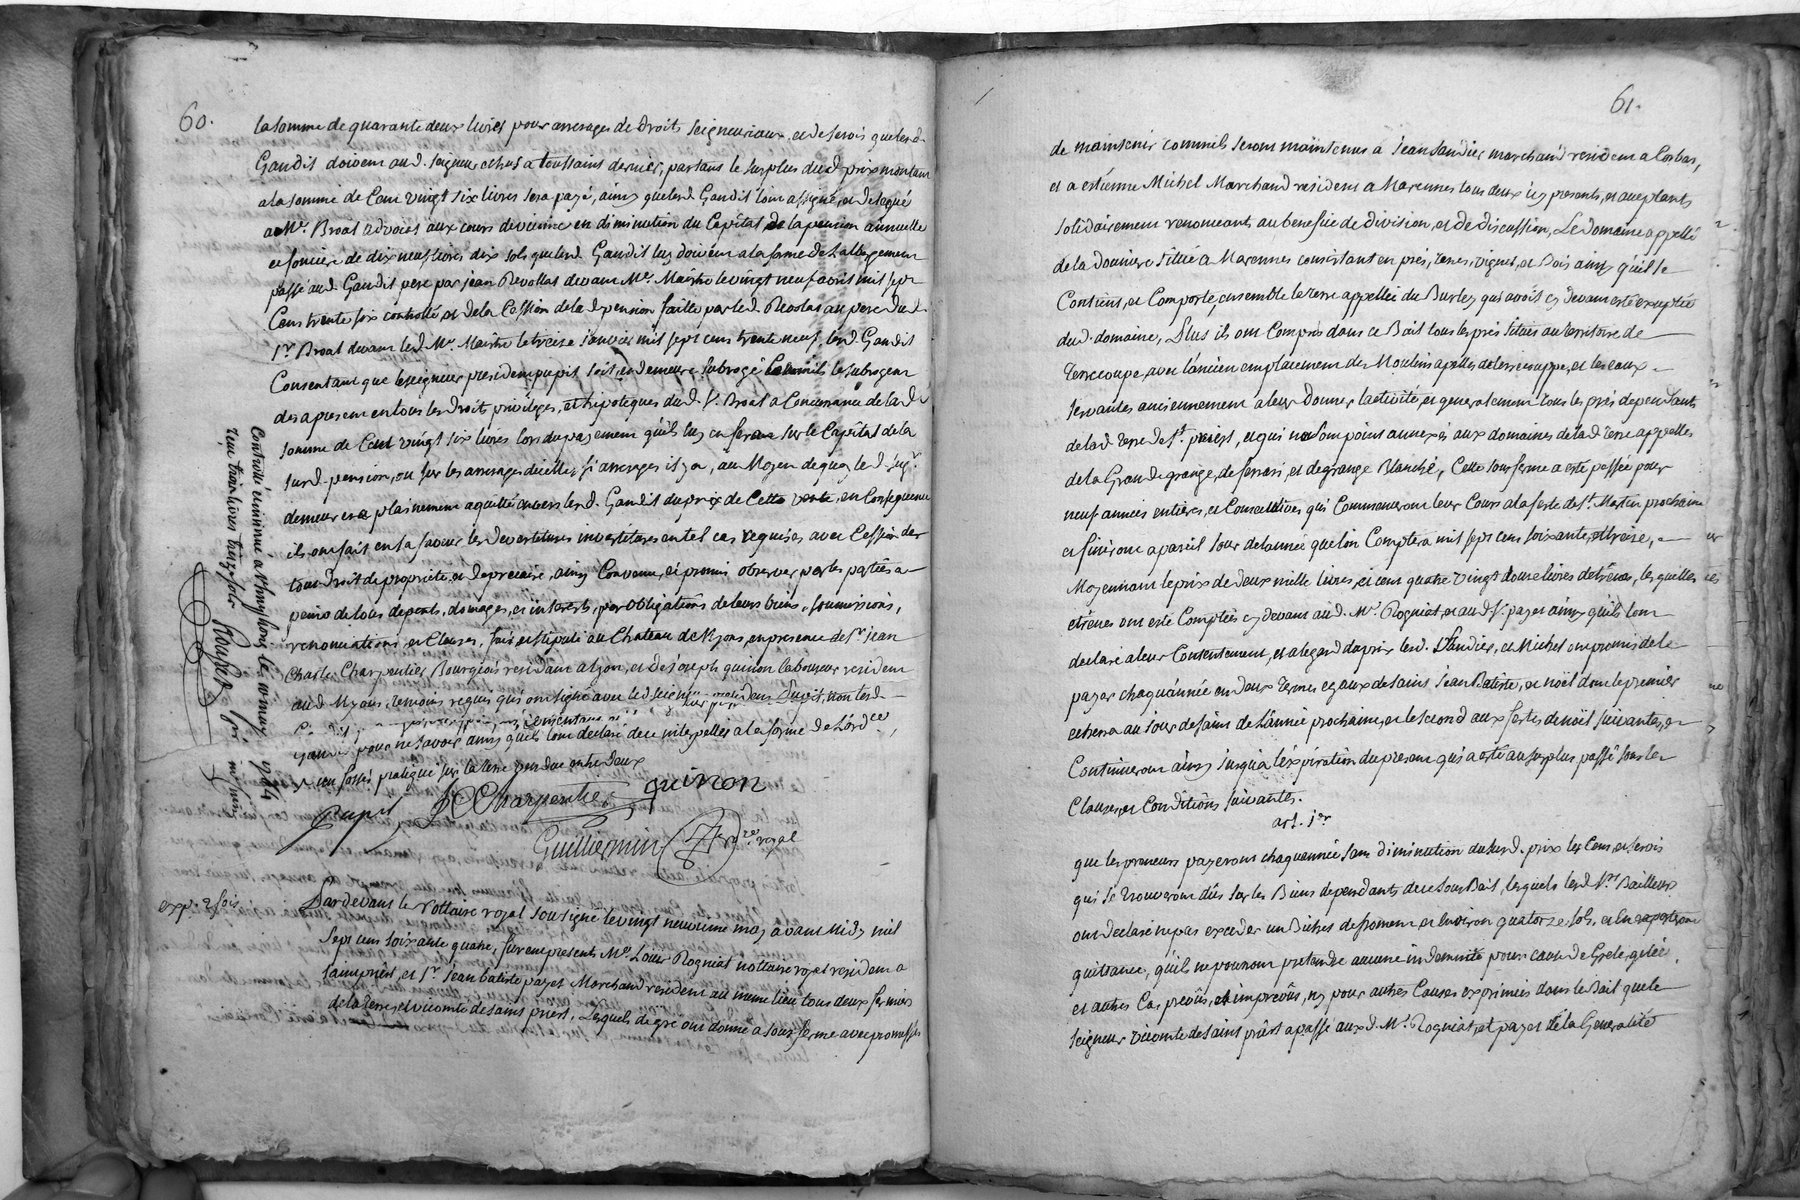 60.
la somme de quarante deux livres pour arrerages de droits seigneuriaux, et de servis que led.
Gaudit doivent aud. seigneur echus a toussaint dernier, partant le surplus dud. prix montant
a la somme de cent vingt six livres sera payé, ainsy que led. Gaudit l'ont assigné, et delegué
a Me. Broal advocat aux cours de vienne en diminution du Capital de la pension annuelle
et fonciere de dix neuf livres dix sols que led. Gaudit luy doivent a la forme de l'albergement
passé aud. Gaudit pere par jean Revollat devant Me. Maistre le vingt neuf avril mil sept
Cens trente six controllé et de la Cession de lad. pension faitte par led. au pere dud.
Sr. Broal devant led. Me. Maistre le treize janvier mil sept cens trente neuf, led. Gaudit
Consentant que le seigneur president pupil soit, et demeure subrogé comm'ils le subrogent
des apresent en tous les droits privileges, et hipoteques dud. Sr. Broal a Concurrance de lad.
somme de Cent vingt six livres lors du payement qu'ils luy en feront sur le Capital de la
susd. pension, ou sur les arrerages d'icelle, si arrerages il y a, au Moyen de quoy led. seigr.
demeurera plainement aquitté envers led. Gaudit du prix de Cette vente, en Consequence
ils ont fait en sa faveur les devestitures investitures en tel cas requises avec Cession de
tout droit de propriété, et de precaire, ainsy Convenu, et promis observer par les parties a
peine de tous depents, domages, et interests, par obligations de leurs biens, soumissions,
renonciations, et Clauses, fait et stipulé au Chateau de Myons, en presence de Sr. jean
Charles Charpentier Bourgeois residant a Lyon, et de joseph quinon laboureur resident
aud. Myons, temoins requis qui ont signé avec led. seigneur
pour ne savoir ainsy qu'ils l'ont declaré de ce interpellés a la forme de l'ordce.,
un fossé pratiqué sur la terre vendue entre deux
Pupil JC Charpentier quinon
Guilliermin royal
Controllé et insinué a st simphorien le may 1764
Reçu trois livres treize sols
exp. 2 fois
Pardevant le Nottaire royal soussigné le vingt neuvieme may avant midy mil
sept cens soixante quatre, furent presents Me. Louis Rogniat nottaire royal resident a
saint priest, et Sr. Jean batiste payet Marchand resident au meme lieu tous deux fermiers
de la terre, et vicomté de saint priest, Lesquels de gré ont donné a sous ferme avec promesses
61.
de maintenir comm'ils seront maintenus a Jean Sandier marchand resident a Corbas,
et a estienne Michel Marchand resident a Marennes tous deux icy presents, et aceptants
solidairement renonceants au benefice de division, et de discussion, Le domaine appellé
de la douniere situé a Marennes consistant en prés, terres, vignes, et Bois ainsy qu'il se
Contient, et Comporte, ensemble la terre appellée du Burley qui avoit cy devant esté exceptée
dud. domaine, Plus ils ont Compris dans ce Bail tous les prés situés au territoire de
Terrecoupe, avec l'ancien emplacement du Moulin apellés de terrecouppe, et les eaux
servantes anciennement a leur donner l'activité, et generalement tous les prés dependants
de lad. terre de st. priest, et qui ne sont point annexés aux domaines de lad. terre appellés
de la Grande grange, de ferrari, et de grange Blanche, Cette sousferme a esté passée pour
neuf années entieres, et Consecutives qui Commenceront leur Cours a la feste de St. Martin prochaine
et finiront a pareil jour de l'année que l'on Comptera mil sept cens soixante, et treize,
Moyennant le prix de deux mille livres, et cent quatre vingt douze livres d'étrenes, les quelles
etrenes ont esté Comptées cy devant aud. Me. Rogniat, et aud. Sr. payet ainsy qu'ils l'ont
declaré a leur Contentement, et a l'egard du prix led. Sandier, et Michel ont promis de le
payer chaqu'année en deux termes egaux de saint Jean Batiste, et noël dont le premier
echerra au jour de saint de l'année prochaine, et le second aux festes de noël suivantes, et
Continueront ainsy jusqu'a l'expiration du present qui a esté au surplus passé sous les
Clauses, et Conditions suivantes.
art. 1er
que les preneurs payeront chaqu'année sans diminution du susd. prix les Cens, et servis
qui se trouveront dûs sur les Biens dependants de ce sous Bail, lesquels led. Srs. Bailleurs
ont declaré ne pas exceder un Bichet de froment et environ quatorze sols, et en raporteront
quittance, qu'ils ne pourront pretendre aucune indemnité pour cause de Grele, gelée,
et autres Cas prevûs, et imprevûs, ny pour autres Causes exprimées dans le Bail que le
seigneur vicomte de saint priest a passé auxd. Me. Rogniat, et payet de la Generalité